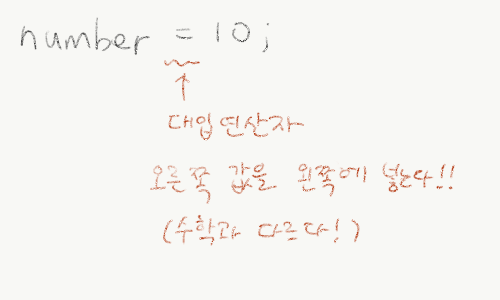 number = 10;
대입연산자
오른쪽 값을 왼쪽에 넣는다!!
(수학과 다르다!)